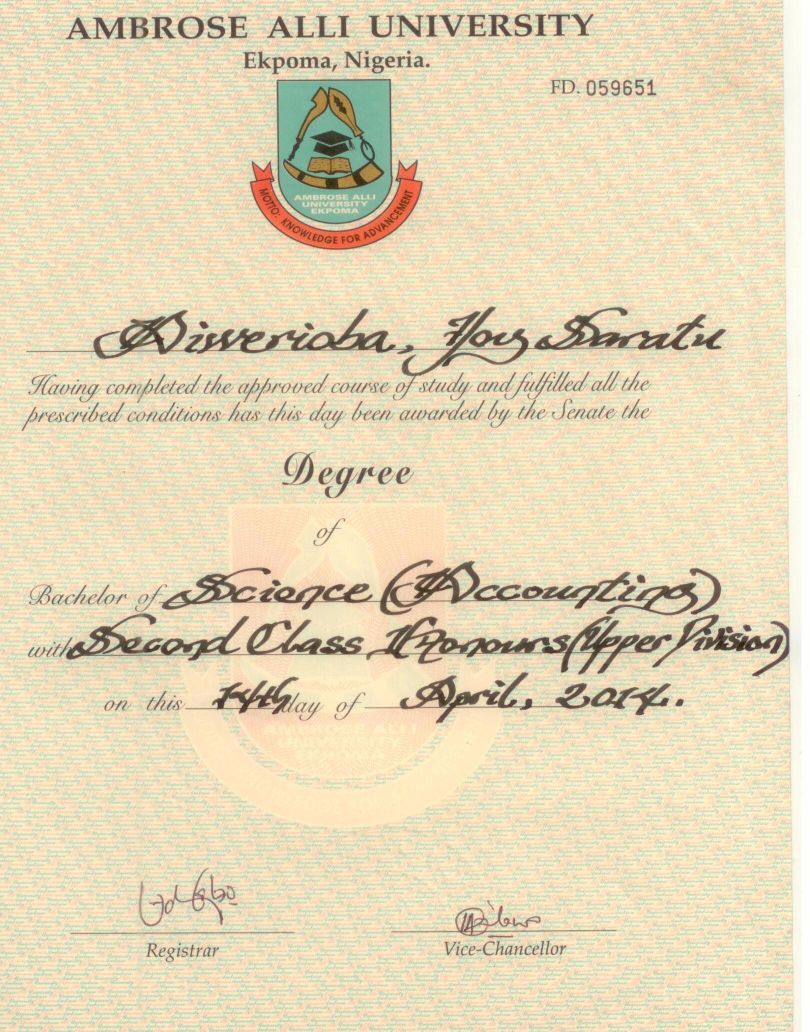 AMBROSE ALLI UNIVERSITY
Ekpoma, Nigeria.
FD. 059651
AMBROSE ALLI
UNIVERSITY
EKPOMA
MOTTO: KNOWLEDGE FOR ADVANCEMENT
Joy Saratu
Having completed the approved course of study and fulfilled all the
prescribed conditions has this day been awarded by the Senate the
Degree
of
Bachelor of Science (Accounting)
with Second Class Honours (Upper Division)
on this 14th day of April, 2014.
AMBROSE ALLI
UNIVERSITY
EKPOMA
Registrar
Vice-Chancellor